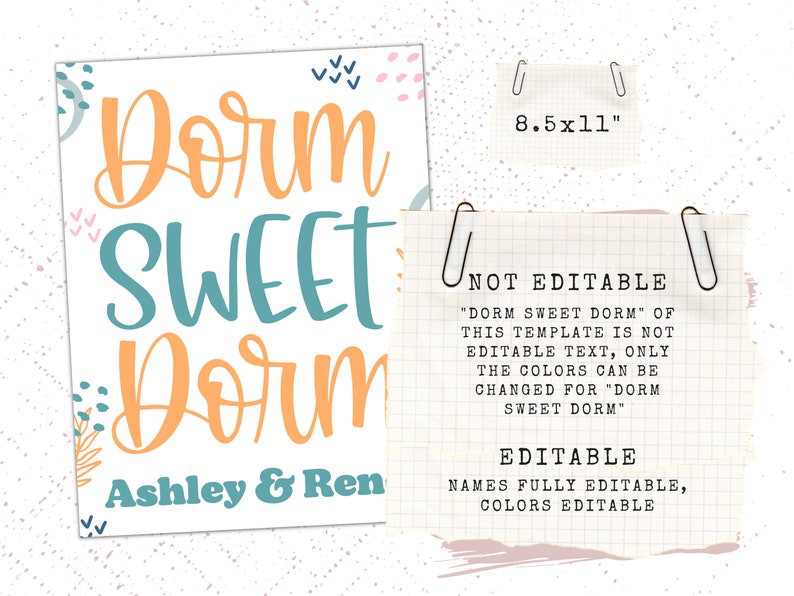 Dorm
SWEET
Dorm
Ashley & Ren
8.5x11"
NOT EDITABLE
"DORM SWEET DORM" OF
THIS TEMPLATE IS NOT
EDITABLE TEXT, ONLY
THE COLORS CAN BE
CHANGED FOR "DORM
SWEET DORM"
EDITABLE
NAMES FULLY EDITABLE,
COLORS EDITABLE